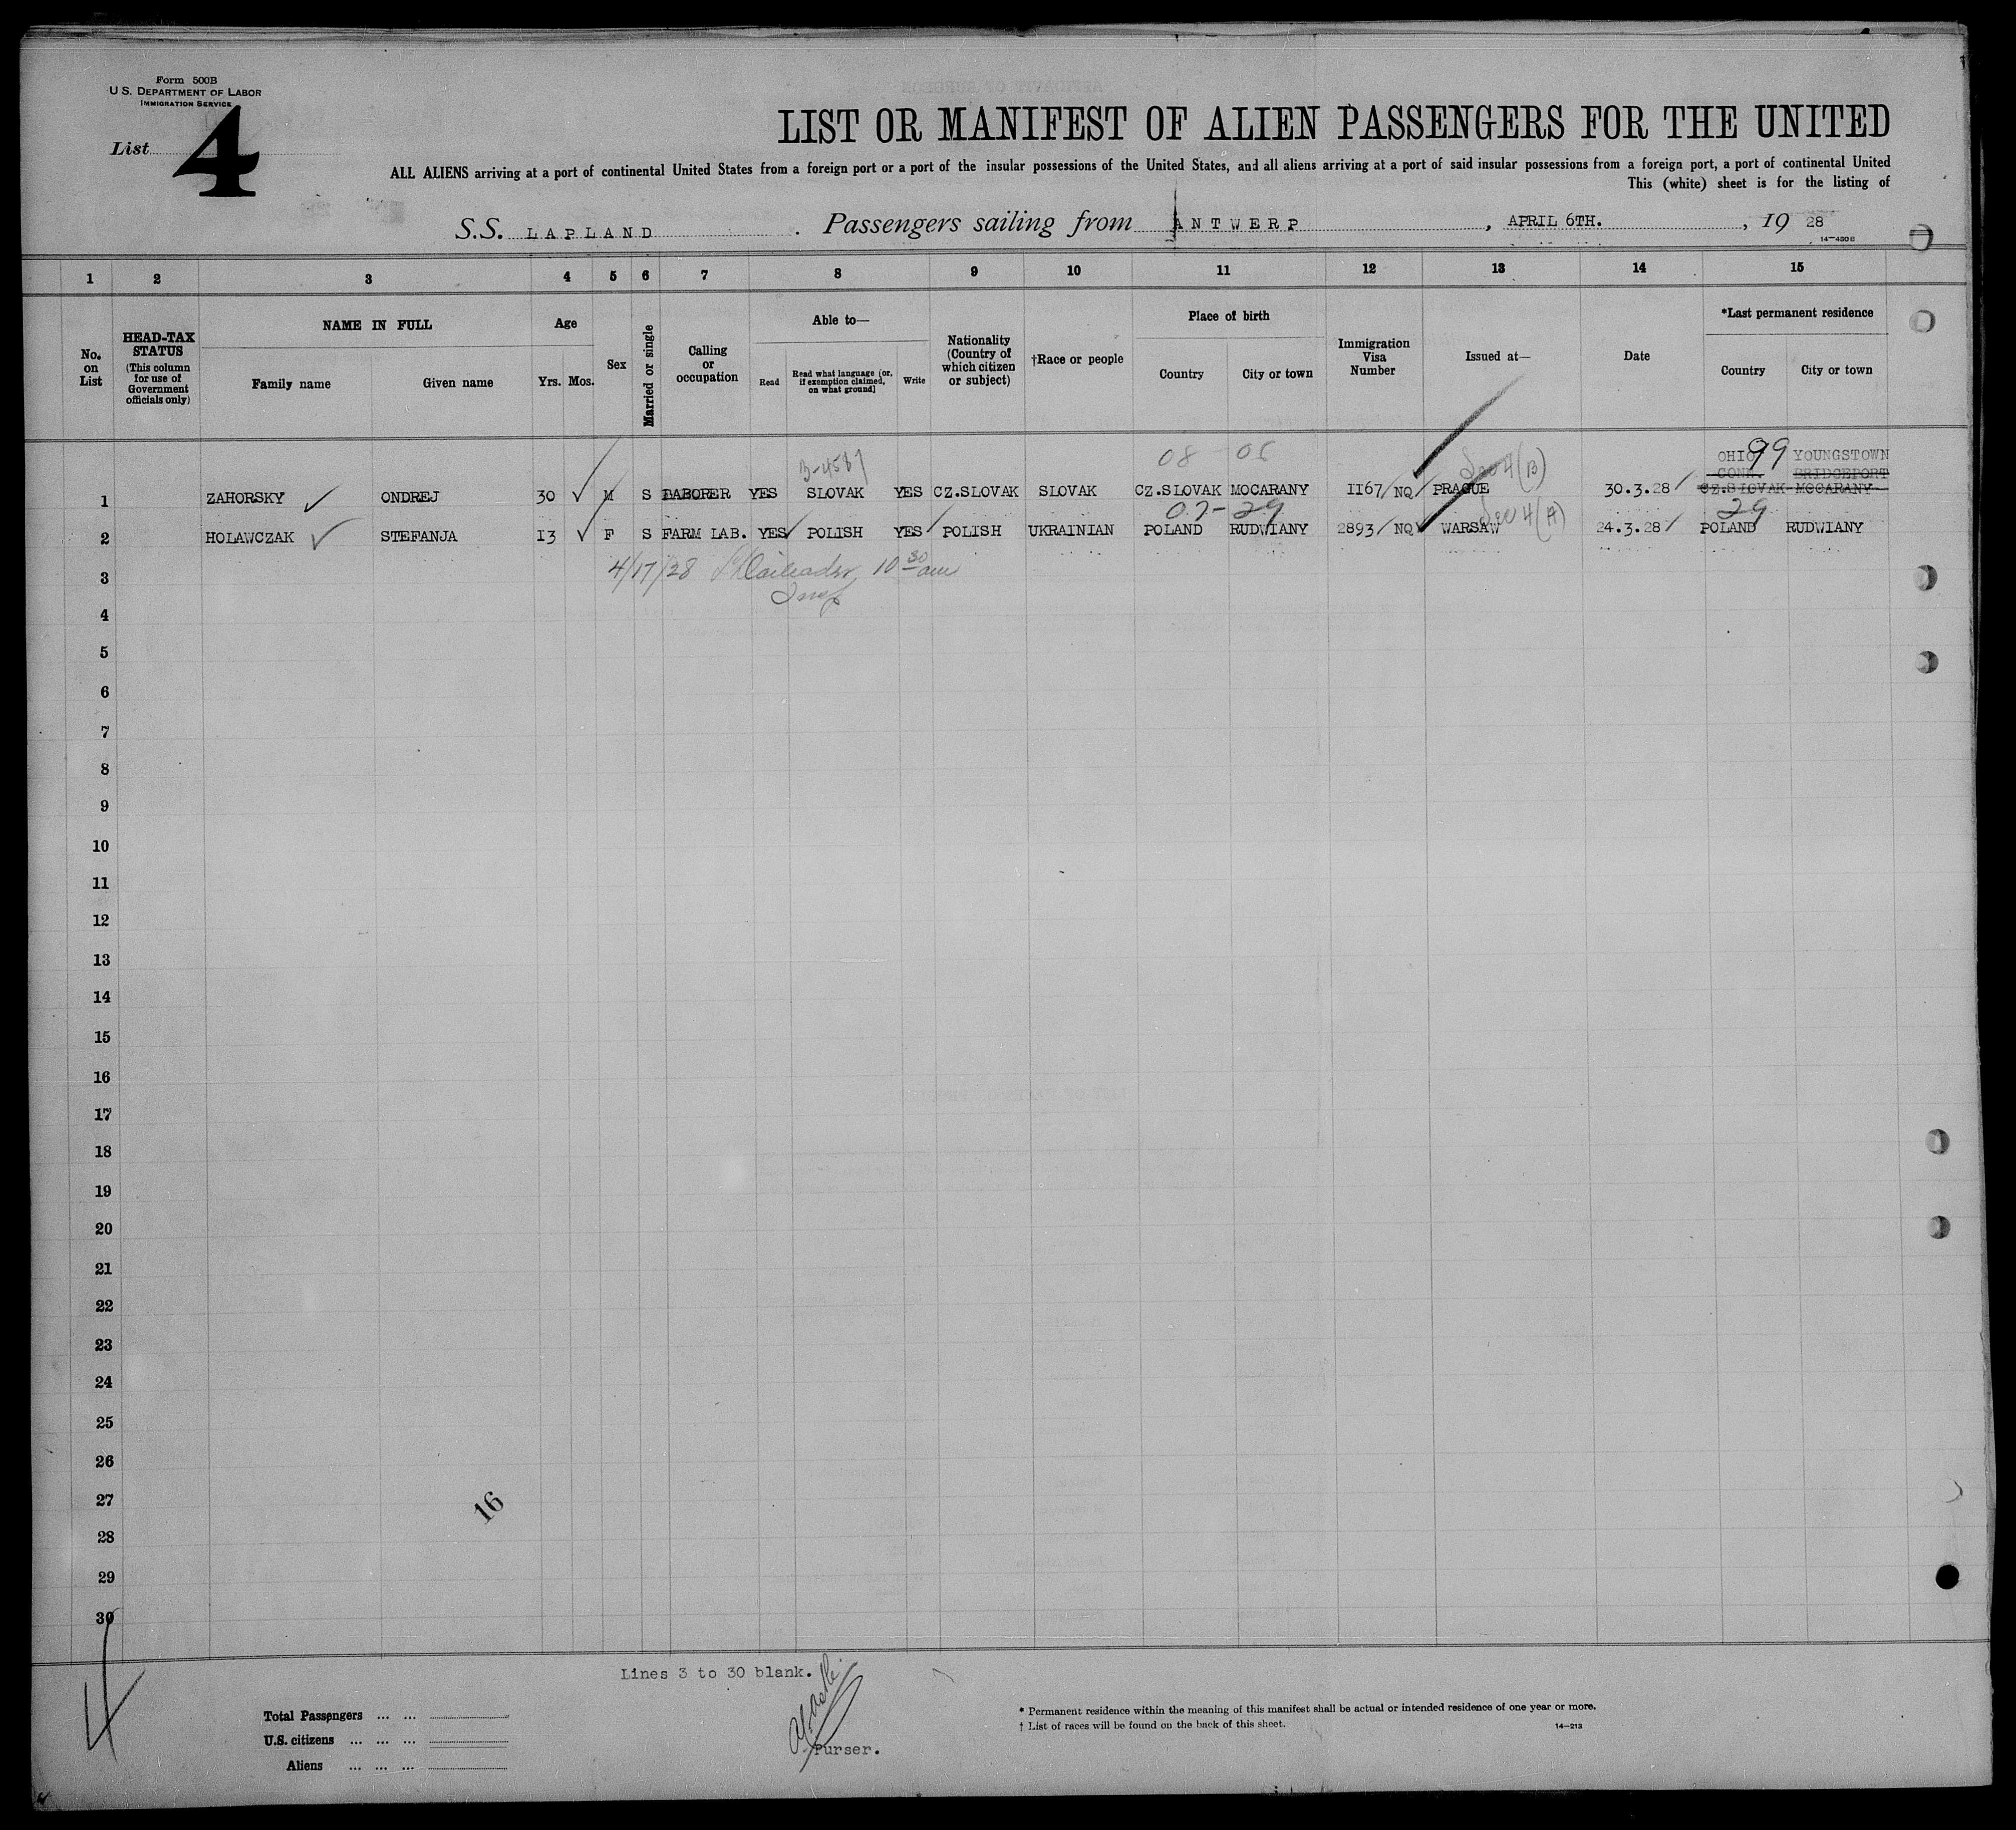 Form 500B
U.S. DEPARTMENT OF LABOR
IMMIGRATION SERVICE
List 4
LIST OR MANIFEST OF ALIEN PASSENGERS FOR THE UNITED
ALL ALIENS arriving at a port of continental United States from a foreign port or a port of the insular possessions of the United States, and all aliens arriving at a port of said insular possessions from a foreign port, a port of continental United
This (white) sheet is for the listing of
S.S. LAPLAND. Passengers sailing from ANTWERP, APRIL 6TH., 19 28
14—430B
1 2 3 4 5 6 7 8 9 10 11 12 13 14 15
No. on List
HEAD-TAX STATUS (This column for use of Government officials only)
NAME IN FULL
Family name Given name
Age
Yrs. Mos.
Sex
Married or single
Calling or occupation
Able to—
Read Read what language (or, if exemption claimed, on what ground) Write
Nationality (Country of which citizen or subject)
†Race or people
Place of birth
Country City or town
Immigration Visa Number
Issued at—
Date
*Last permanent residence
Country City or town
08 06 OHIO 99 YOUNGSTOWN
CONN. BRIDGEPORT
1 ZAHORSKY ONDREJ 30 M S LABORER YES SLOVAK YES CZ.SLOVAK SLOVAK CZ.SLOVAK MOCARANY 1167 NQ PRAGUE 30.3.28 CZ.SLOVAK MOCARANY
07-29 29
2 HOLAWCZAK STEFANJA 13 F S FARM LAB. YES POLISH YES POLISH UKRAINIAN POLAND RUDWIANY 2893 NQ WARSAW 24.3.28 POLAND RUDWIANY
3 4/17/28 10 30 am
4
5
6
7
8
9
10
11
12
13
14
15
16
17
18
19
20
21
22
23
24
25
26
27 16
28
29
30
4
Lines 3 to 30 blank.
Total Passengers ... ...
U.S. citizens ... ... ...
Aliens ... ... ...
Purser.
* Permanent residence within the meaning of this manifest shall be actual or intended residence of one year or more.
† List of races will be found on the back of this sheet.
14—213